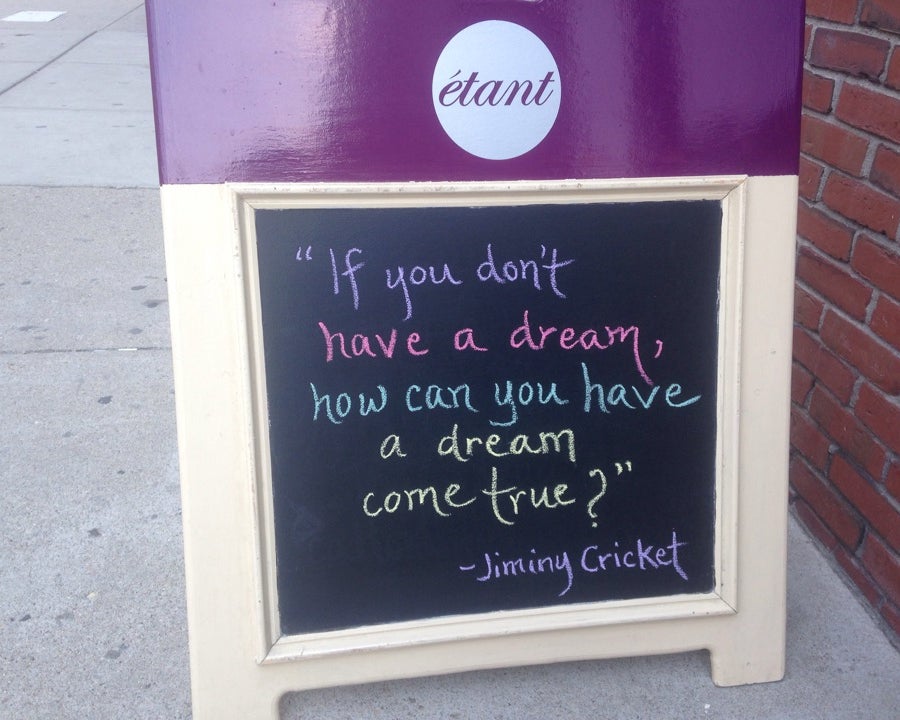 étant
“If you don't
have a dream,
how can you have
a dream
come true?”
-Jiminy Cricket